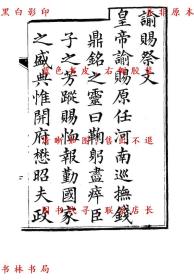 黑白影印
非原本
諭賜祭文
皇帝諭賜原任河南巡撫錢
鼎銘之靈曰鞠躬盡瘁臣
子之芳蹤賜卹報勤國家
之盛典惟開府懋昭夫政
书林书局